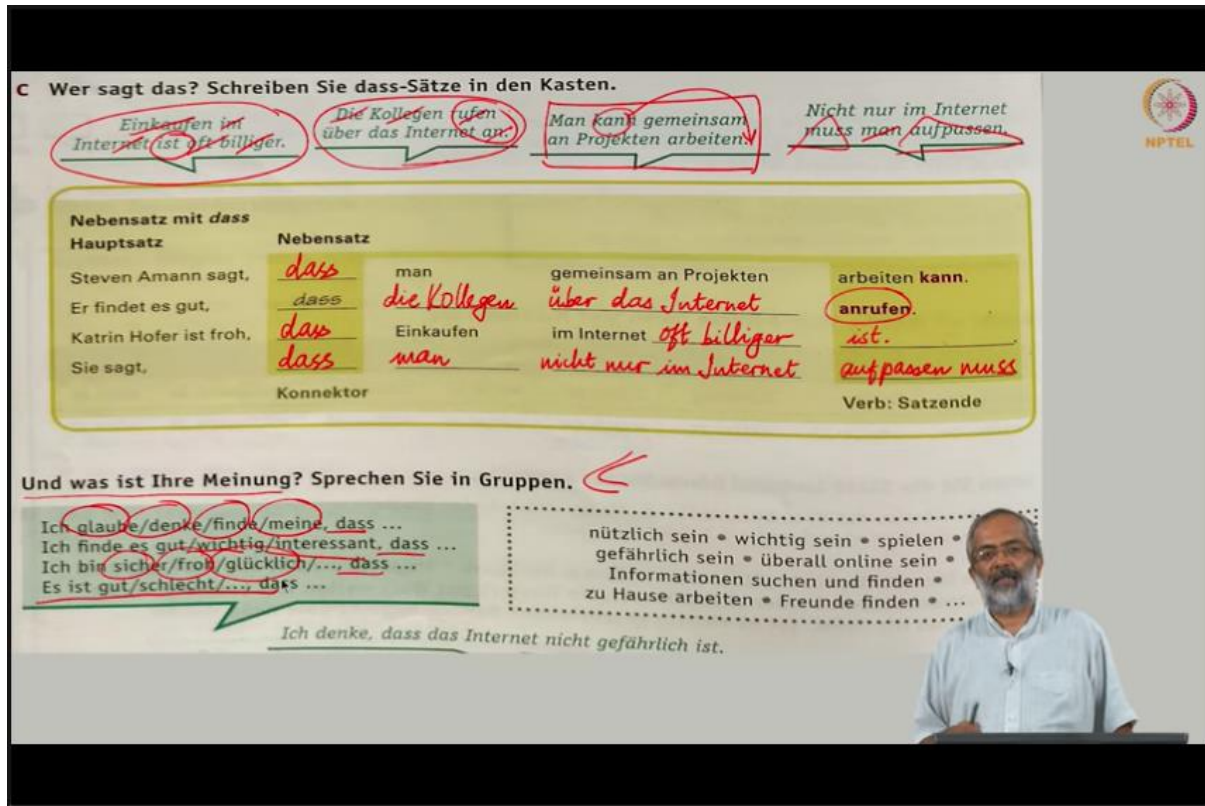 C Wer sagt das? Schreiben Sie dass-Sätze in den Kasten.
Einkaufen im
Internet ist oft billiger.
Die Kollegen rufen
über das Internet an.
Man kann gemeinsam
an Projekten arbeiten.
Nicht nur im Internet
muss man aufpassen.
NPTEL
Nebensatz mit dass
Hauptsatz Nebensatz
Steven Amann sagt, dass man gemeinsam an Projekten arbeiten kann.
Er findet es gut, dass die Kollegen über das Internet anrufen.
Katrin Hofer ist froh, dass Einkaufen im Internet oft billiger ist.
Sie sagt, dass man nicht nur im Internet aufpassen muss
Konnektor Verb: Satzende
Und was ist Ihre Meinung? Sprechen Sie in Gruppen.
Ich glaube/denke/finde/meine, dass ...
Ich finde es gut/wichtig/interessant, dass ...
Ich bin sicher/froh/glücklich/..., dass ...
Es ist gut/schlecht/..., dass ...
nützlich sein • wichtig sein • spielen •
gefährlich sein • überall online sein •
Informationen suchen und finden •
zu Hause arbeiten • Freunde finden • ...
Ich denke, dass das Internet nicht gefährlich ist.